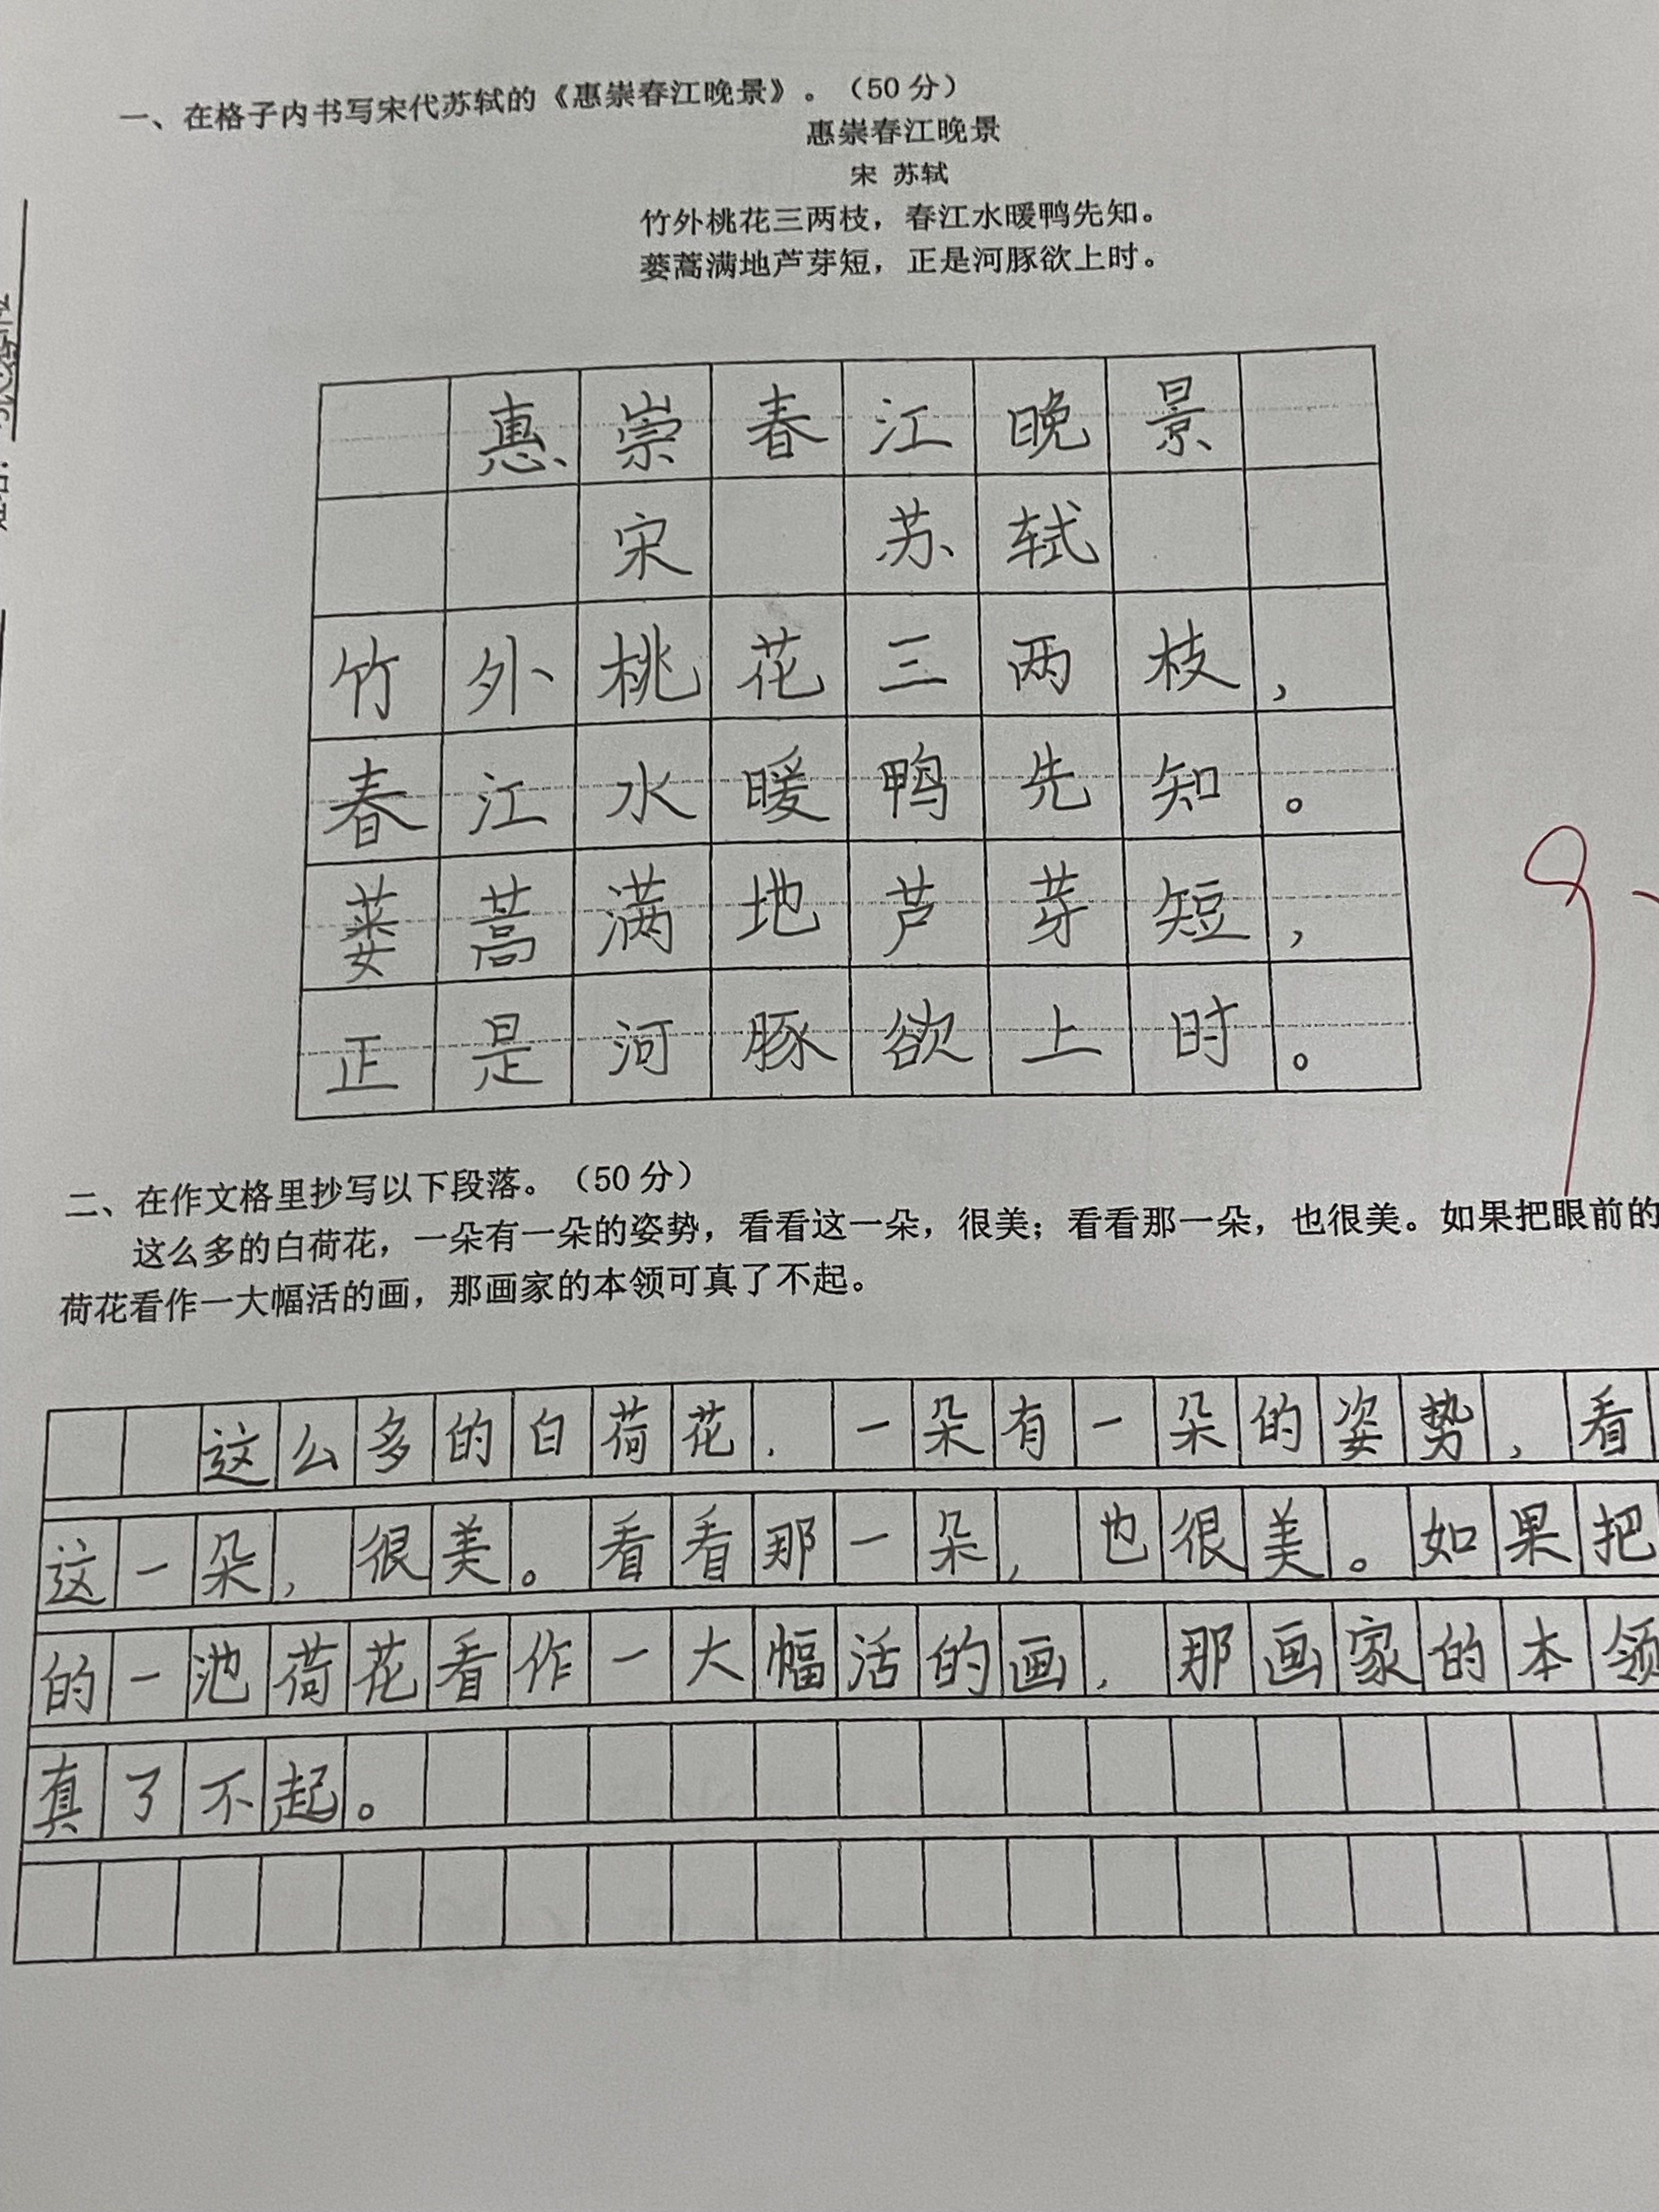 一、在格子内书写宋代苏轼的《惠崇春江晚景》。（50 分）
惠崇春江晚景
宋 苏轼
竹外桃花三两枝，春江水暖鸭先知。
蒌蒿满地芦芽短，正是河豚欲上时。
惠崇春江晚景
宋 苏轼
竹外桃花三两枝，
春江水暖鸭先知。
蒌蒿满地芦芽短，
正是河豚欲上时。
二、在作文格里抄写以下段落。（50 分）
这么多的白荷花，一朵有一朵的姿势，看看这一朵，很美；看看那一朵，也很美。如果把眼前的
荷花看作一大幅活的画，那画家的本领可真了不起。
这么多的白荷花，一朵有一朵的姿势，看
这一朵，很美。看看那一朵，也很美。如果把
的一池荷花看作一大幅活的画，那画家的本领
真了不起。